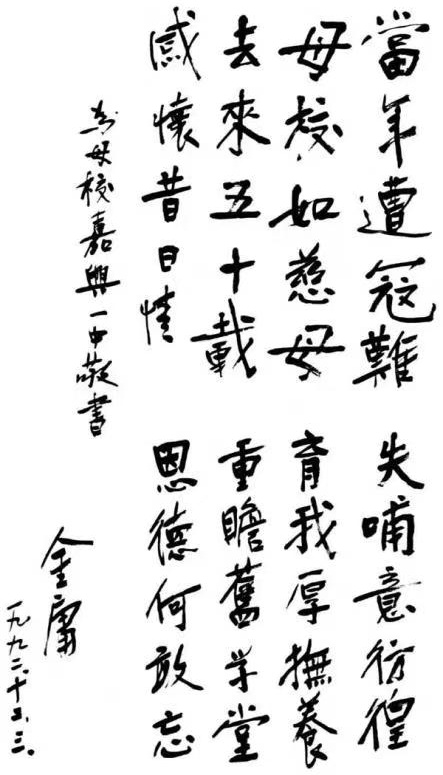 當年遭寇難 失哺意彷徨
母校如慈母 育我厚撫養
去來五十載 重瞻舊学堂
感懷昔日情 恩德何敢忘
为母校嘉興一中敬書
金庸
一九九二、十二、三、